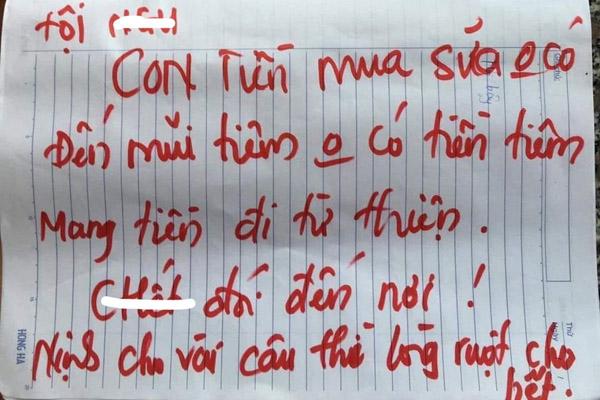 tội
CON Tiền mua sữa o có
Đến mũi tiêm o có tiền tiêm
Mang tiền đi từ thiện.
đến nơi !
Nịnh cho vài câu thì lòng ruột cho
hết.
HONG HA
Thứ
Ngày